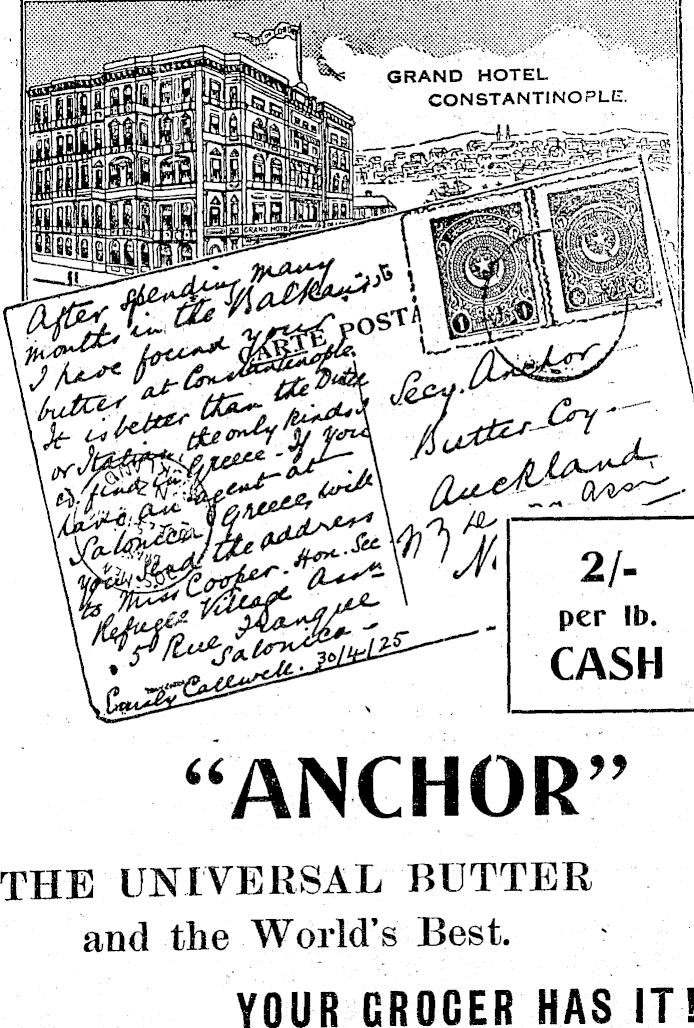 GRAND HOTEL
CONSTANTINOPLE.
GRAND HOTEL
After spending many
months in the Balkans
I have found your
butter at Constantinople.
It is better than the Dutch
or Italian, the only kinds I
cd. find in Greece - If you
have an agent at
Salonica, Greece, will
you send the address
to Miss Cooper. Hon. Sec
Refugee Village Assn
5 Rue Franque
Salonica -
Callwell. 30/4/25
CARTE POSTA
1
Secy. Anchor
Butter Coy.
Auckland
2/-
per lb.
CASH
“ANCHOR”
THE UNIVERSAL BUTTER
and the World's Best.
YOUR GROCER HAS IT!